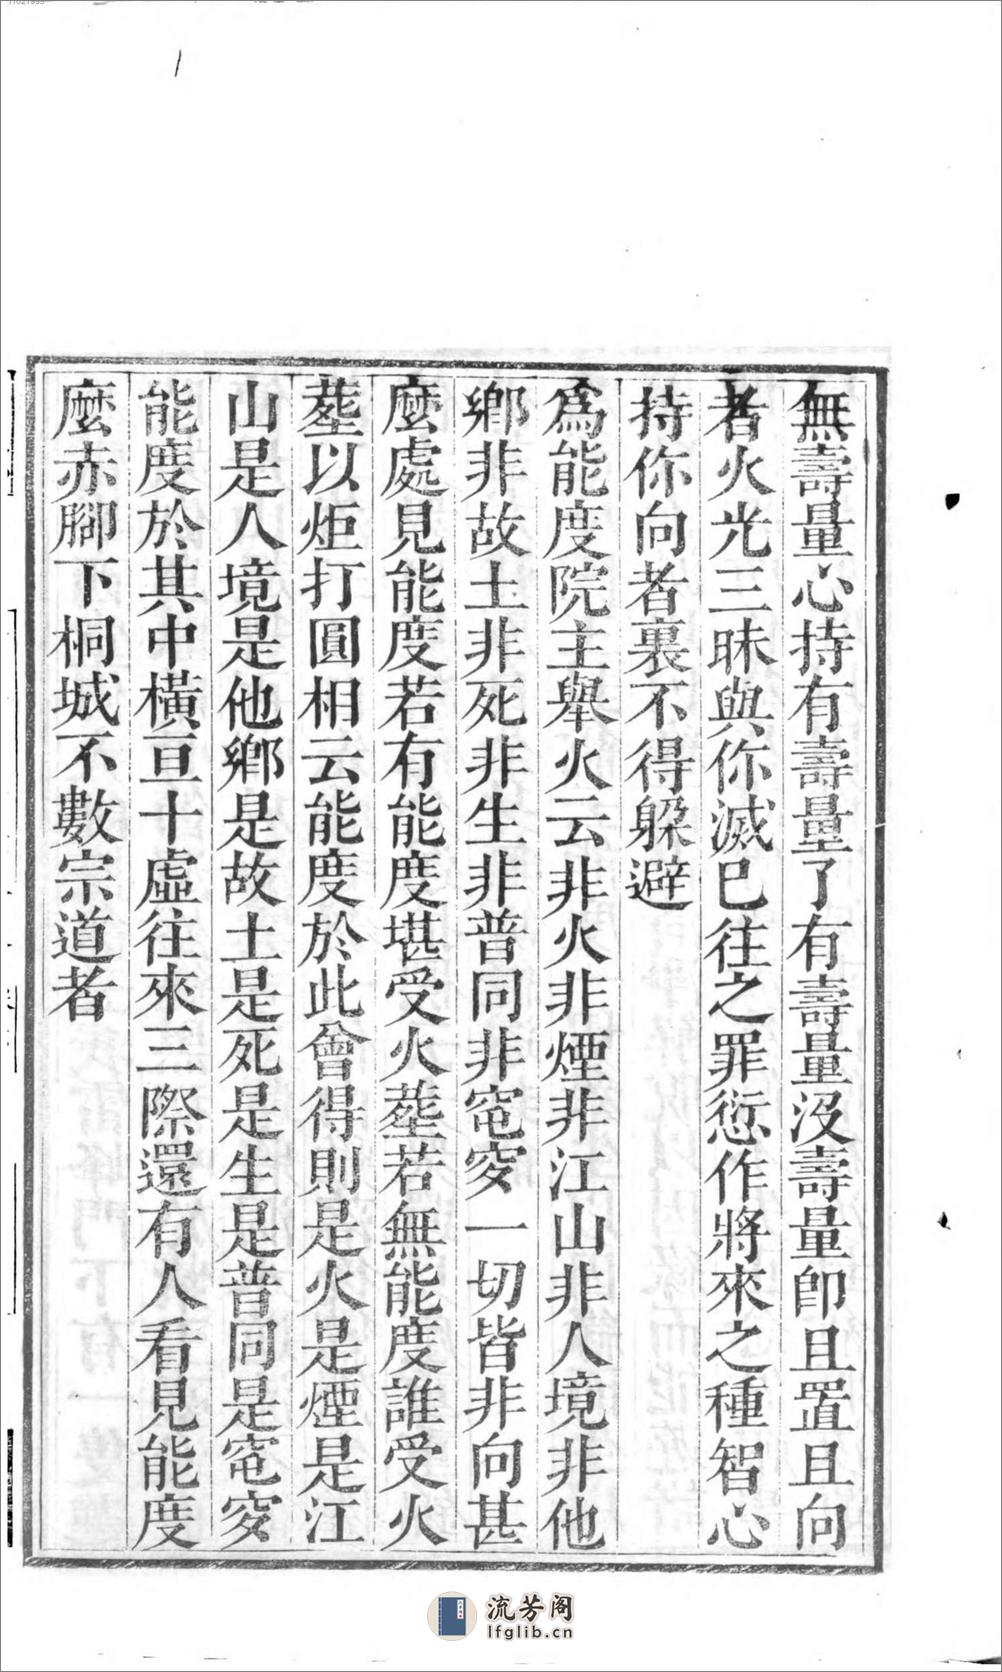 無壽量心持有壽量了有壽量沒壽量卽且置且向
者火光三昧與你滅已往之罪愆作將來之種智心
持你向者裏不得躲避
爲能度院主舉火云非火非煙非江山非人境非他
鄉非故土非死非生非普同非窀穸一切皆非向甚
麼處見能度若有能度堪受火塟若無能度誰受火
塟以炬打圓相云能度於此會得則是火是煙是江
山是人境是他鄉是故土是死是生是普同是窀穸
能度於其中橫亘十虛往來三際還有人看見能度
麼赤腳下桐城不數宗道者
流芳阁
lfglib.cn